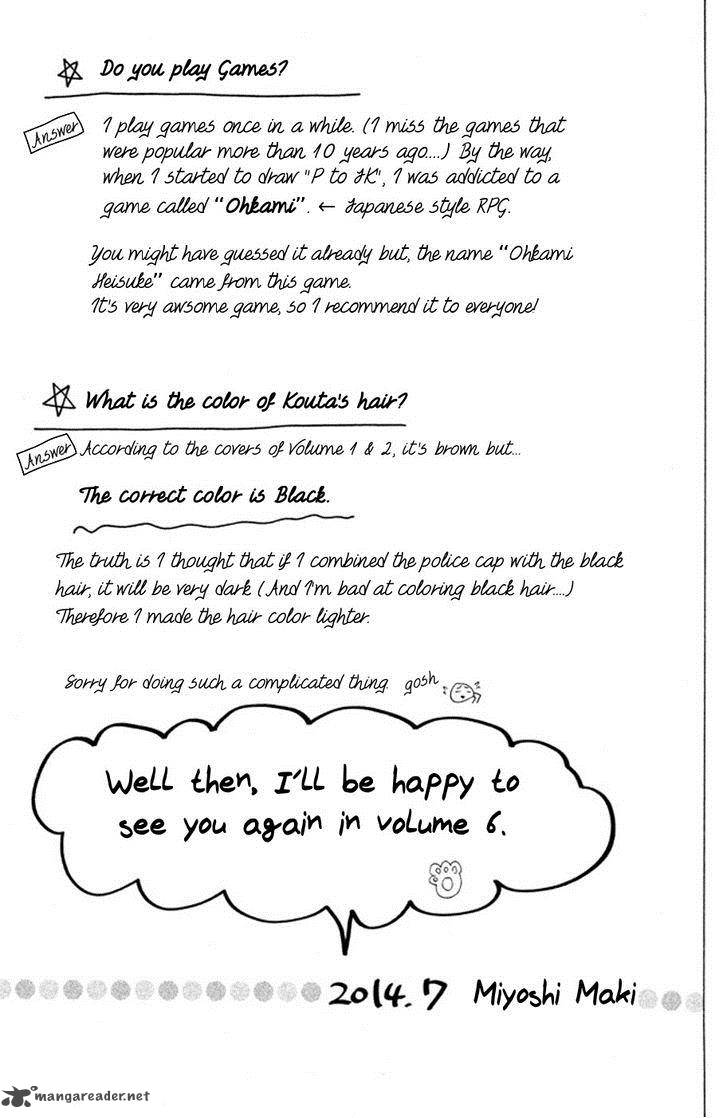 Do you play Games?
Answer
I play games once in a while. (I miss the games that
were popular more than 10 years ago....) By the way,
when I started to draw "P to JK", I was addicted to a
game called "Ohkami". ← Japanese style RPG.
You might have guessed it already but, the name "Ohkami
Heisuke" came from this game.
It's very awsome game, so I recommend it to everyone!
What is the color of Kouta's hair?
Answer
According to the covers of Volume 1 & 2, it's brown but...
The correct color is Black.
The truth is I thought that if I combined the police cap with the black
hair, it will be very dark (And I'm bad at coloring black hair....)
Therefore I made the hair color lighter.
Sorry for doing such a complicated thing. gosh
Well then, I'll be happy to
see you again in volume 6.
2014.7 Miyoshi Maki
mangareader.net